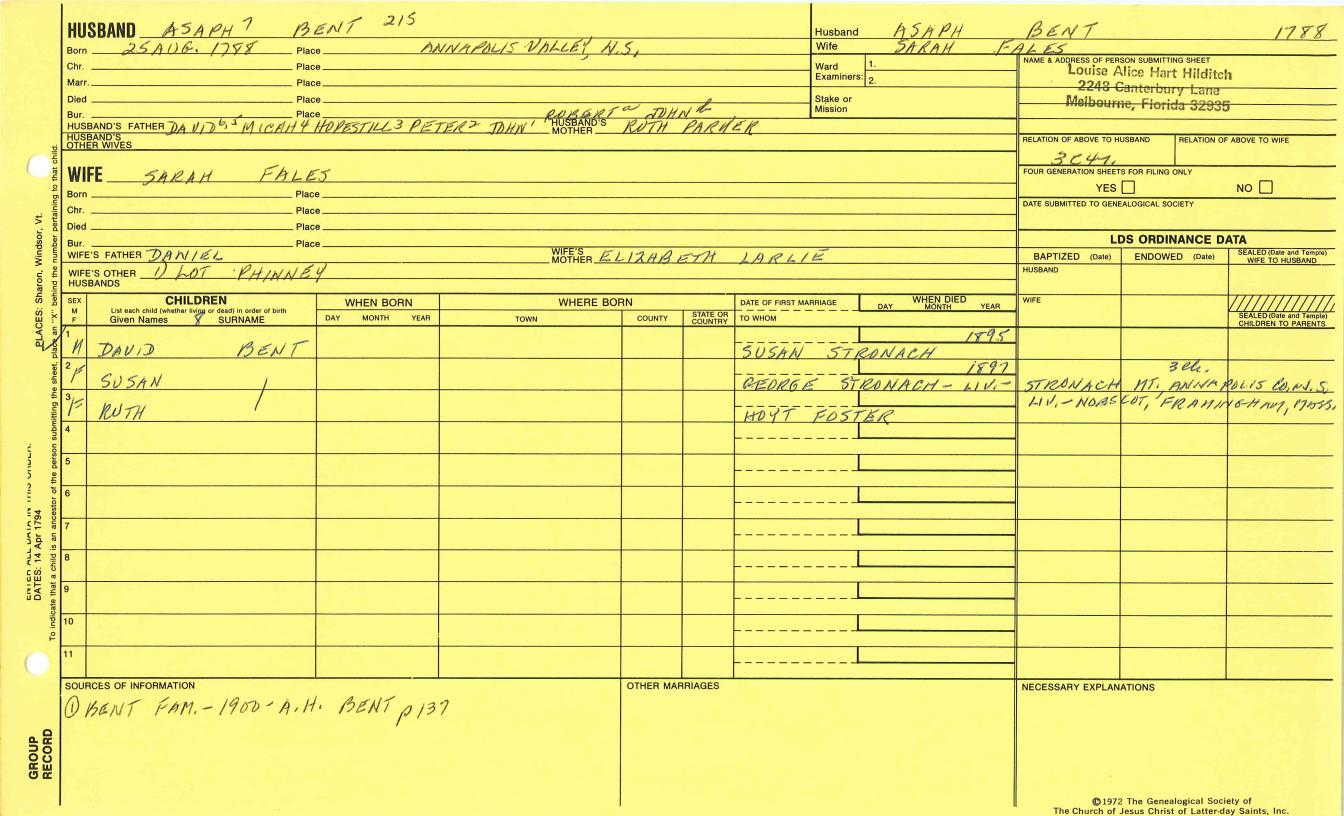 HUSBAND ASAPH 7 BENT 215
Born 25 AUG. 1788 Place ANNAPOLIS VALLEY, N.S.
Chr. Place
Marr. Place
Died Place
Bur. Place ROBERT a JOHN b
HUSBAND'S FATHER DAVID 6,5 MICAH 4 HOPESTILL 3 PETER 2 JOHN 1 HUSBAND'S MOTHER RUTH PARKER
HUSBAND'S OTHER WIVES
Husband ASAPH BENT 1788
Wife SARAH FALES
Ward Examiners: 1.
2.
Stake or Mission
NAME & ADDRESS OF PERSON SUBMITTING SHEET
Louise Alice Hart Hilditch
2248 Canterbury Lane
Melbourne, Florida 32935
RELATION OF ABOVE TO HUSBAND RELATION OF ABOVE TO WIFE
3C4r.
FOUR GENERATION SHEETS FOR FILING ONLY
YES NO
DATE SUBMITTED TO GENEALOGICAL SOCIETY
WIFE SARAH FALES
Born Place
Chr. Place
Died Place
Bur. Place
WIFE'S FATHER DANIEL WIFE'S MOTHER ELIZABETH LARLIE
WIFE'S OTHER HUSBANDS 1) LOT PHINNEY
LDS ORDINANCE DATA
BAPTIZED (Date) ENDOWED (Date) SEALED (Date and Temple) WIFE TO HUSBAND
HUSBAND
WIFE
SEALED (Date and Temple) CHILDREN TO PARENTS
SEX M F
CHILDREN
List each child (whether living or dead) in order of birth
Given Names 8 SURNAME
WHEN BORN
DAY MONTH YEAR
WHERE BORN
TOWN COUNTY STATE OR COUNTRY
DATE OF FIRST MARRIAGE
TO WHOM
WHEN DIED
DAY MONTH YEAR
1 M DAVID BENT SUSAN STRONACH 1895
2 F SUSAN GEORGE STRONACH - LIV. - 1897 3 ch. STRONACH MT. ANNAPOLIS CO, N.S.
3 F RUTH HOYT FOSTER LIV. - NOBSCOT, FRAMINGHAM, MASS.
4
5
6
7
8
9
10
11
SOURCES OF INFORMATION
① BENT FAM. - 1900 - A.H. BENT p 137
OTHER MARRIAGES
NECESSARY EXPLANATIONS
©1972 The Genealogical Society of
The Church of Jesus Christ of Latter-day Saints, Inc.
PLACES: Sharon, Windsor, Vt.
ENTER ALL DATA IN THIS ORDER:
DATES: 14 Apr 1794
To indicate that a child is an ancestor of the person submitting the sheet, place an "X" behind the number pertaining to that child.
GROUP RECORD